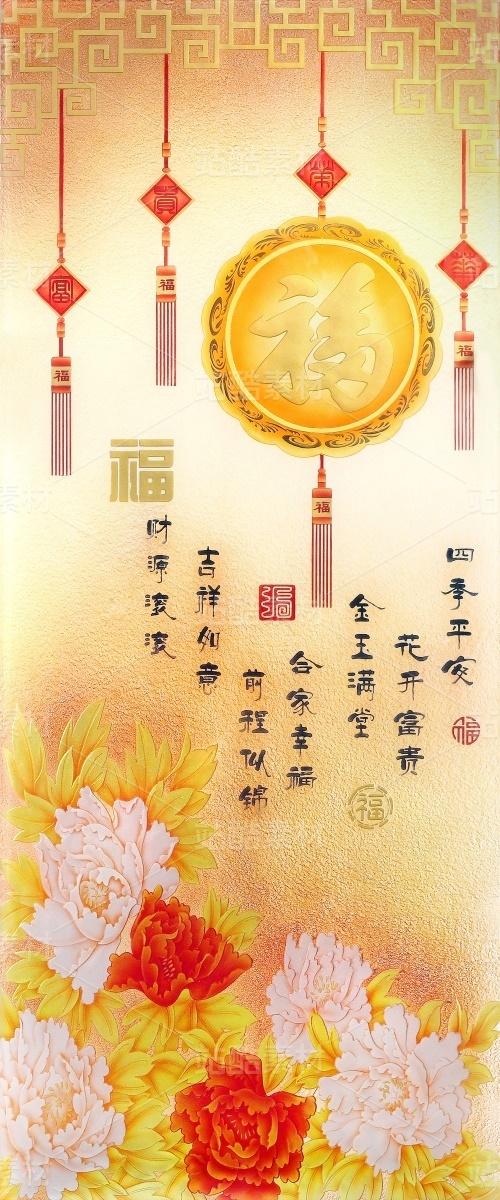 荣
貴
華
富
福
福
福
福
福
福
四季平安
花开富贵
金玉满堂
合家幸福
前程似锦
吉祥如意
财源滚滚
福
福
福
站酷素材